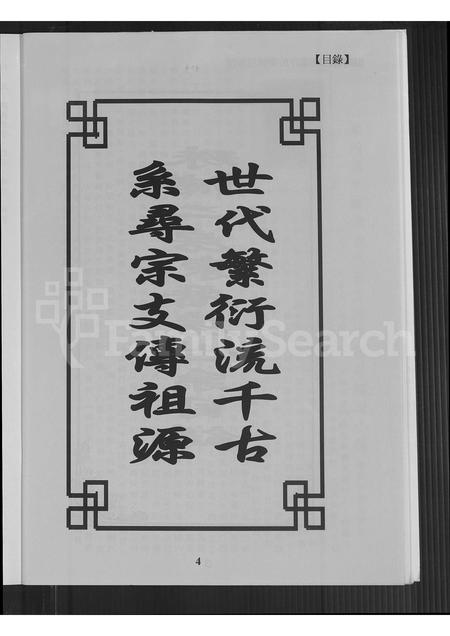 【目錄】
世代繁衍流千古
系尋宗支傳祖源
FamilySearch
4